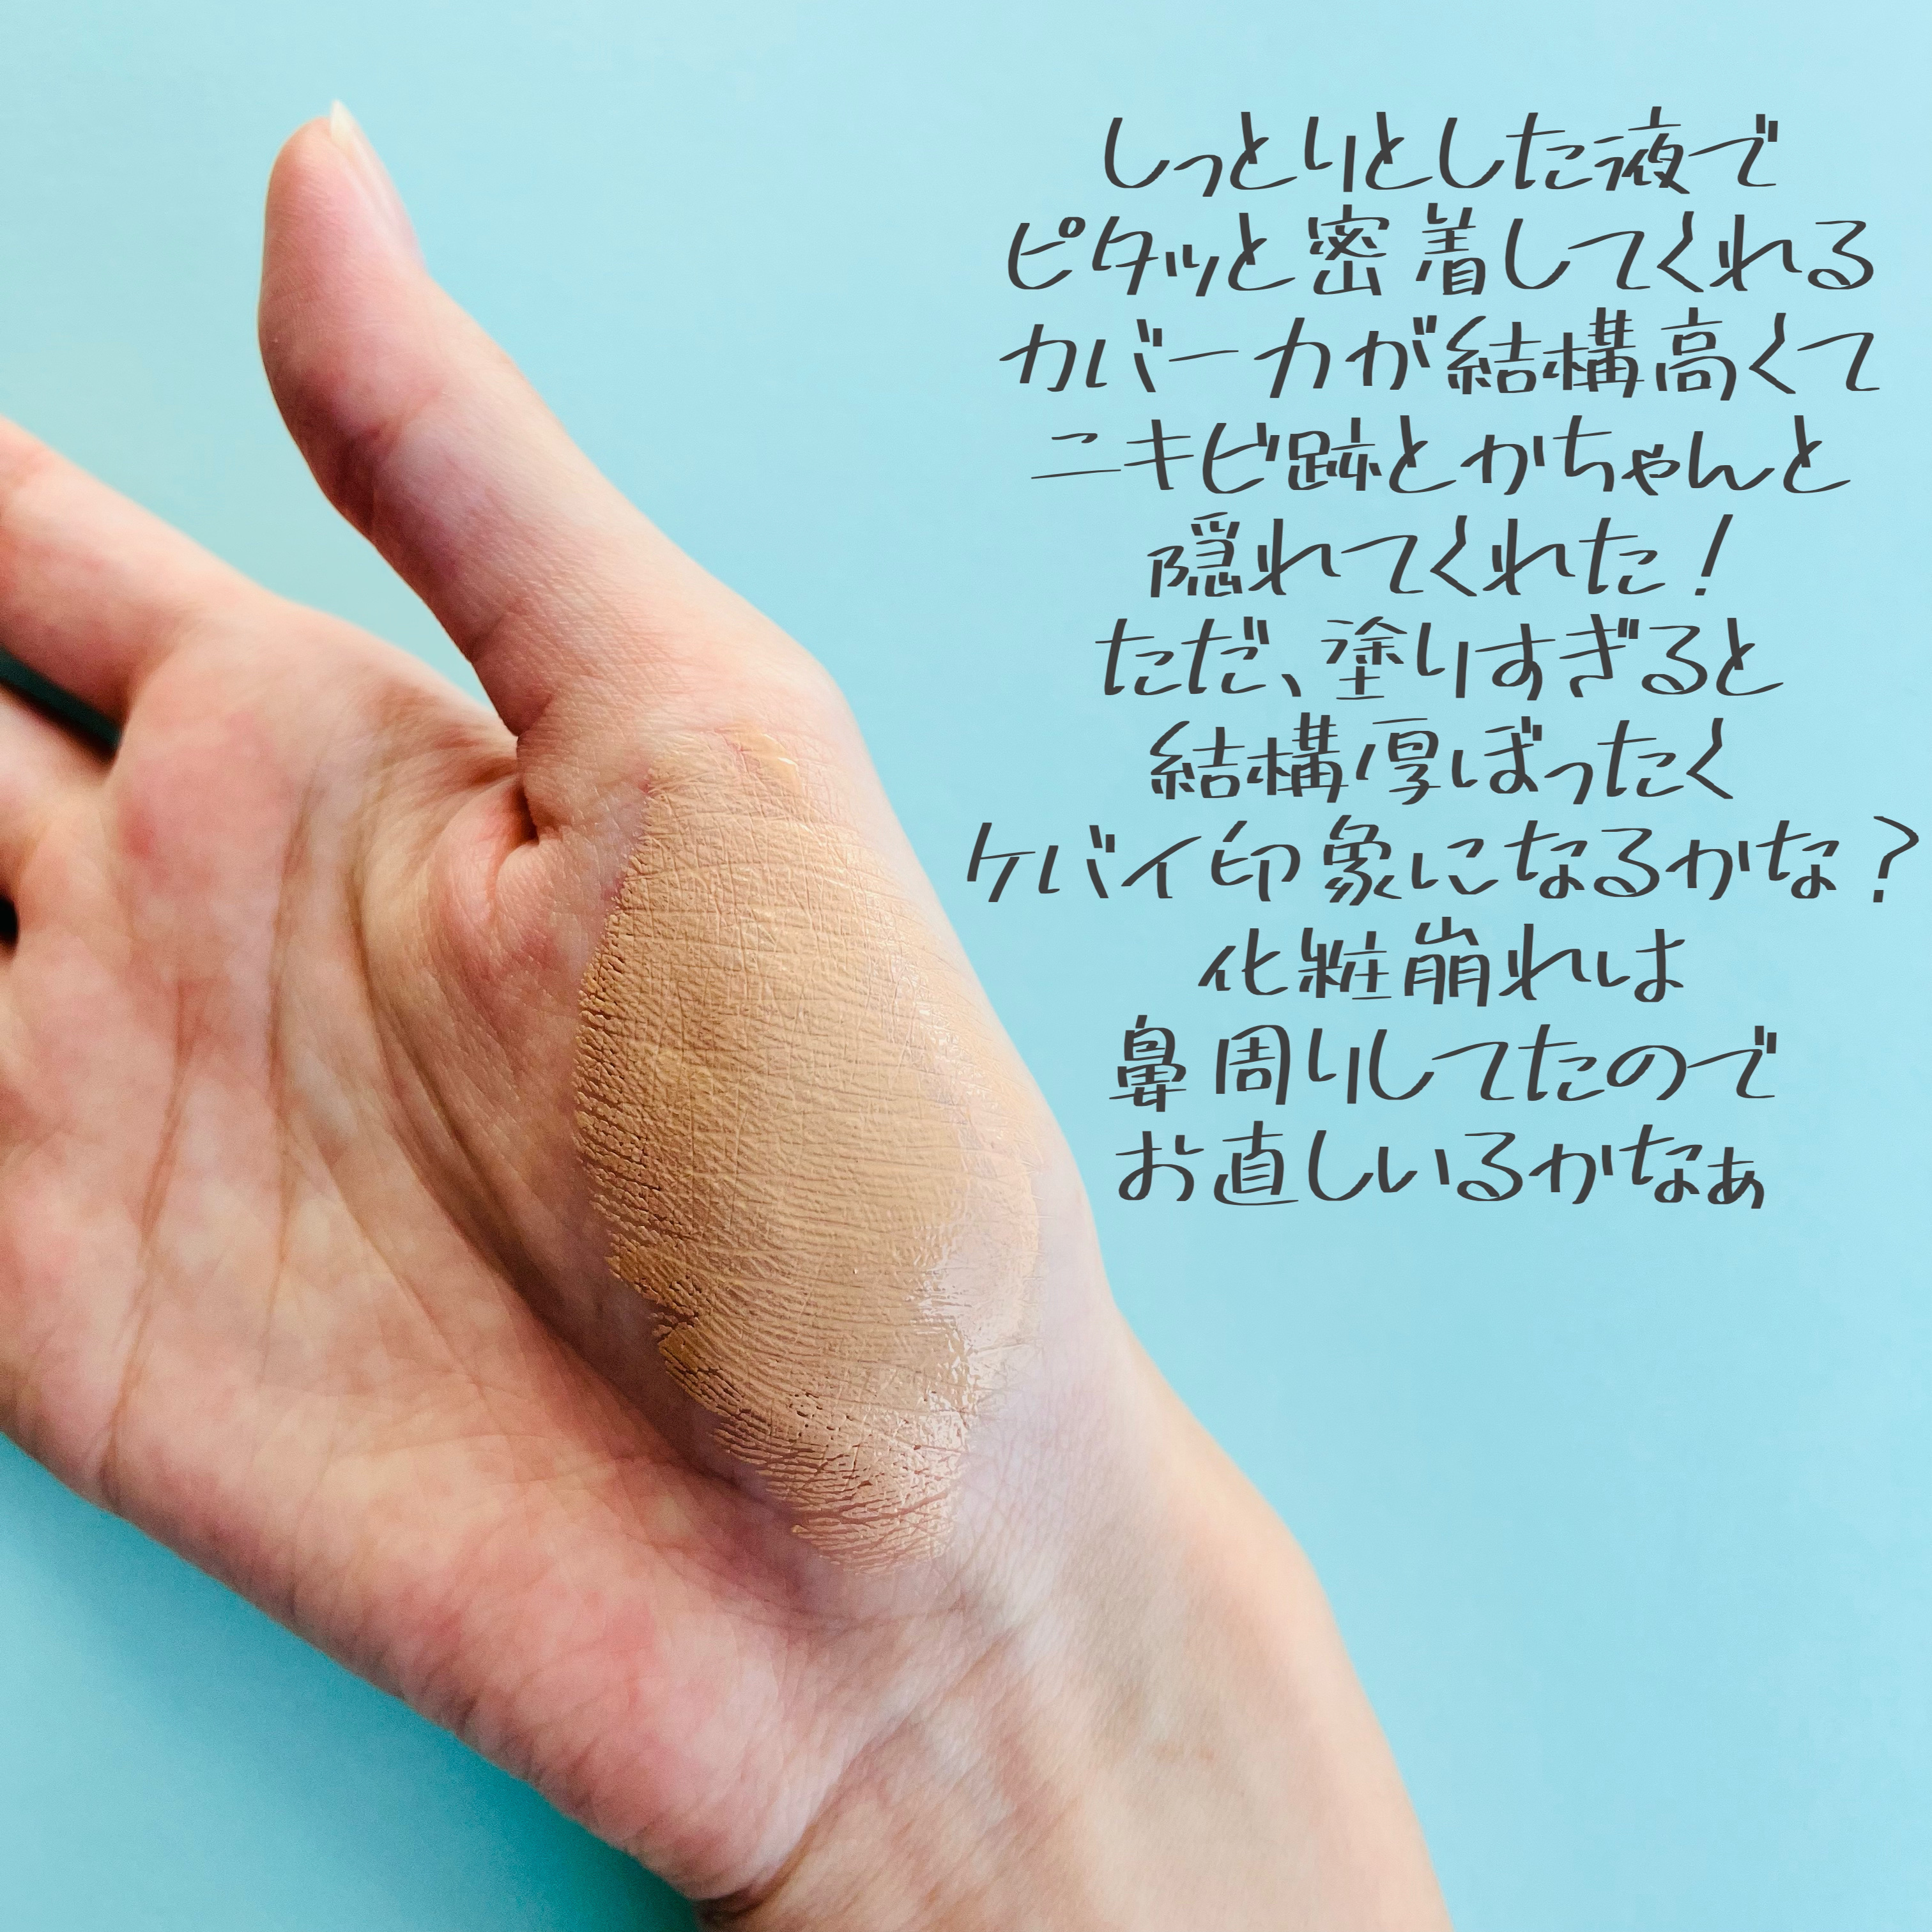 しっとりとした液で
ピタッと密着してくれる
カバー力が結構高くて
ニキビ跡とかちゃんと
隠れてくれた！
ただ、塗りすぎると
結構厚ぼったく
ケバイ印象になるかな？
化粧崩れは
鼻周りしてたので
お直しいるかなぁ